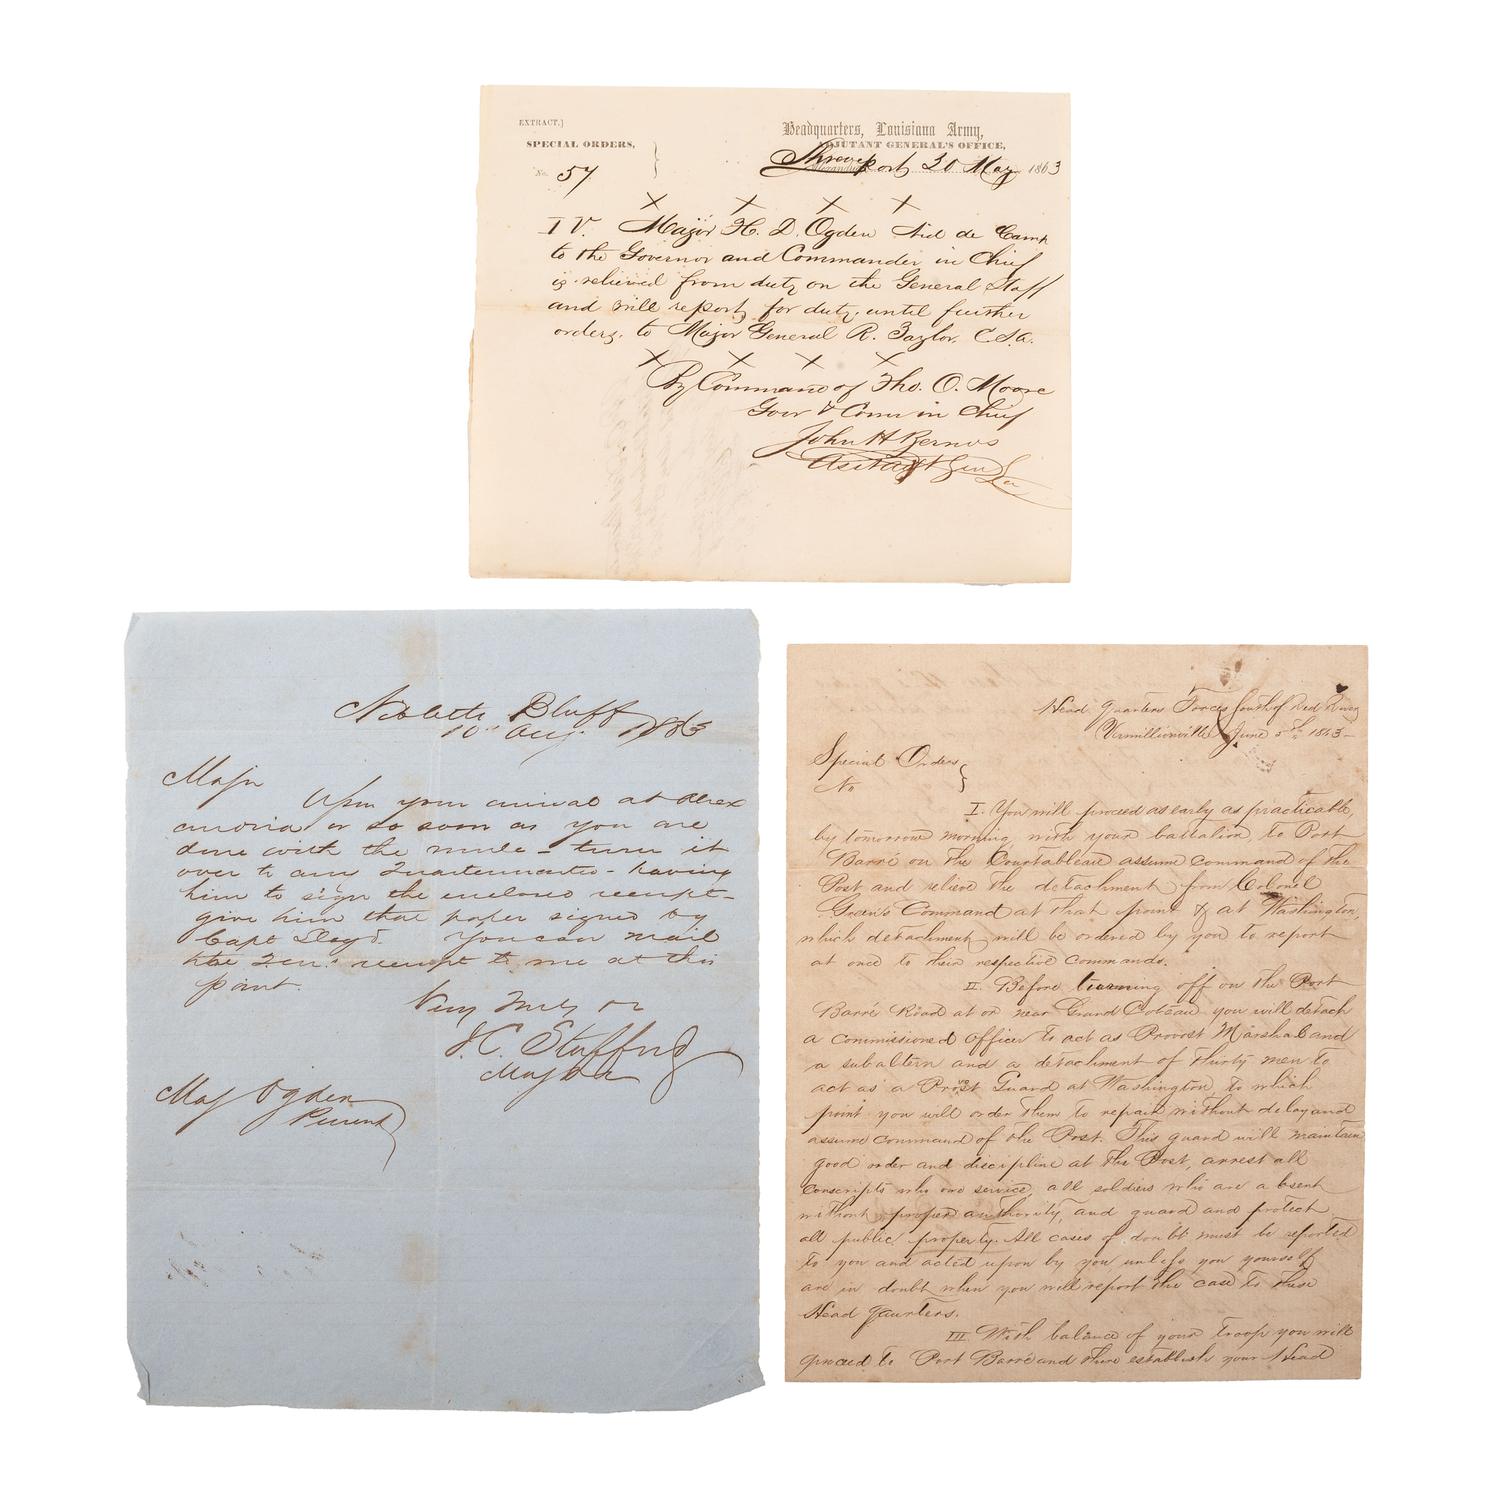 EXTRACT.}
Headquarters, Louisiana Army,
SPECIAL ORDERS,
ADJUTANT GENERAL'S OFFICE,
No. 57
Shreveport 30 May 1863
X X X X
IV. Major H. D. Ogden Aid de Camp
to the Governor and Commander in Chief
is relieved from duty on the General Staff
and will report, for duty, until further
orders, to Major General R. Taylor, C.S.A.
X X X X
By Command of Tho. O. Moore
Gov & Com in Chief
John H Bernos
Gen La
Bluff
10 Aug. 1863
Major
Upon your arrival at Alex
andria or so soon as you are
done with the mule - turn it
over to any Quartermaster - having
him to sign the enclosed receipt -
give him that paper signed by
Capt Lloyd. You can mail
the receipt to me at this
point.
Very Truly
J.C. Stafford
Maj
Maj Ogden
Present
Head Quarters Forces South of Red River
Vermillionville June 5th 1863 -
Special Orders }
No
I. You will proceed as early as practicable,
by tomorrow morning, with your battalion, to Port
Barré on the Courtableau assume command of the
Post and relieve the detachment from Colonel
Green's Command at that point & at Washington,
which detachment will be ordered by you to report
at once to their respective commands.
II. Before turning off on the Port
Barré Road at or near Grand Coteau you will detach
a commissioned officer to act as Provost Marshal and
a subaltern and a detachment of thirty men to
act as a Provost Guard at Washington, to which
point you will order them to repair without delay and
assume command of the Post. This guard will maintain
good order and discipline at the Post, arrest all
conscripts who owe service, all soldiers who are absent
without proper authority, and guard and protect
all public property. All cases of doubt must be reported
to you and acted upon by you unless you yourself
are in doubt when you will report the case to these
Head Quarters.
III With balance of your troop you will
proceed to Port Barré and there establish your Head